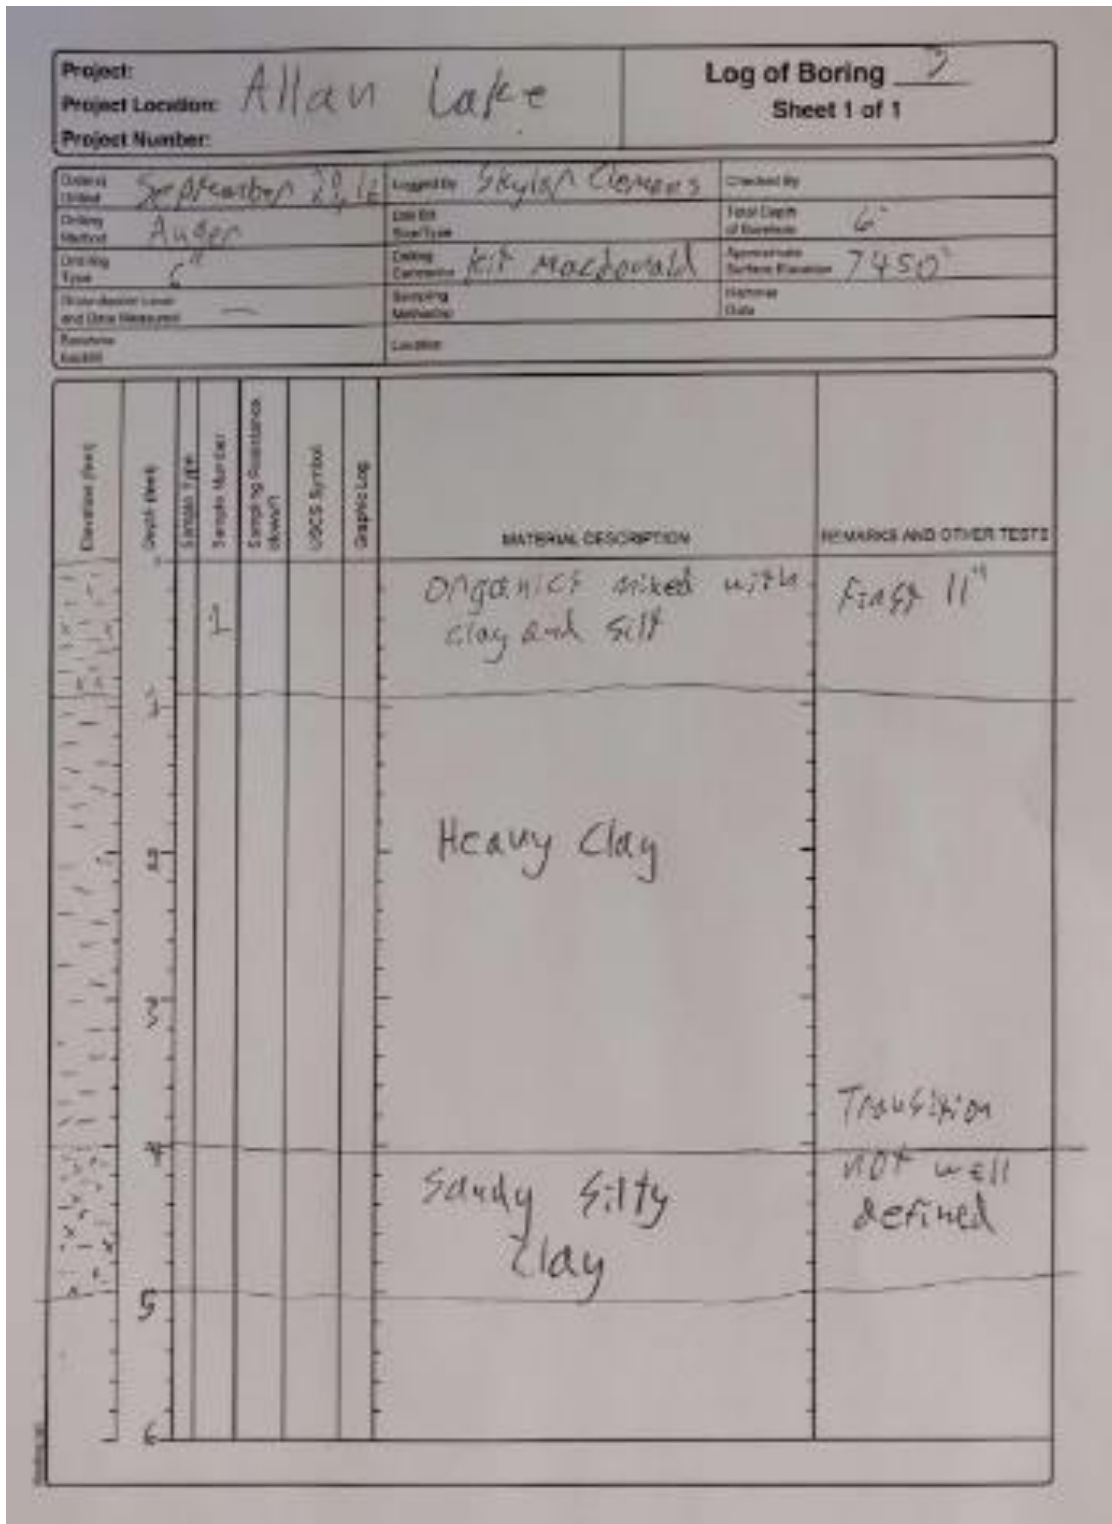 Project:
Project Location: Allan Lake
Project Number:
Log of Boring
Sheet 1 of 1
September Logged By Skylar Clemens Checked By
Drilling Method Auger Drill Bit Size/Type Total Depth of Borehole 6'
Drill Rig Type 6" Drilling Contractor Kit Macdonald Approximate Surface Elevation 7450'
Groundwater Level and Date Measured — Sampling Method(s) Hammer Data
Borehole Backfill Location
Elevation (feet)
Depth (feet)
Sample Type
Sample Number
Sampling Resistance,
USCS Symbol
Graphic Log
MATERIAL DESCRIPTION
REMARKS AND OTHER TESTS
1
Organics mixed with
clay and silt
First 11"
1
2
Heavy Clay
3
Transition
4
not well
defined
Sandy Silty
Clay
5
6